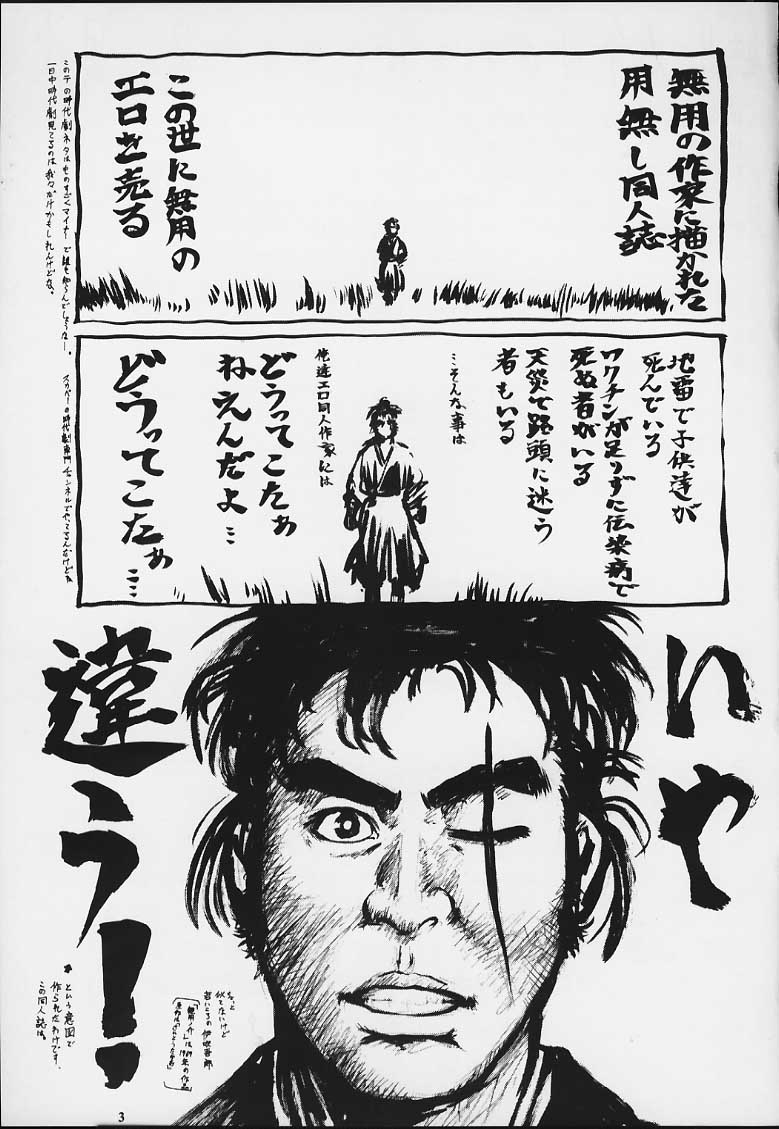 無用の作家に描かれた
用無し同人誌
この世に無用の
エロを売る
地雷で子供達が
死んでいる
ワクチンが足りずに伝染病で
死ぬ者がいる
天災で路頭に迷う
者もいる
…そんな事は
俺達エロ同人作家には
どうってこたぁ
ねえんだよ…
どうってこたぁ……
いや
違う!
ちょっと
似てないけど
若いころの伊吹吾郎
「無用ノ介」は1969年の作品
という意図で
作られたわけです、
この同人誌は。
この手の時代劇ネタはものすごくマイナーで誰も知らんでしょうなー。
スカパーの時代劇専門チャンネルでやってるんだけどね
一日中時代劇見てるのは我々だけかもしれんけどな。
3